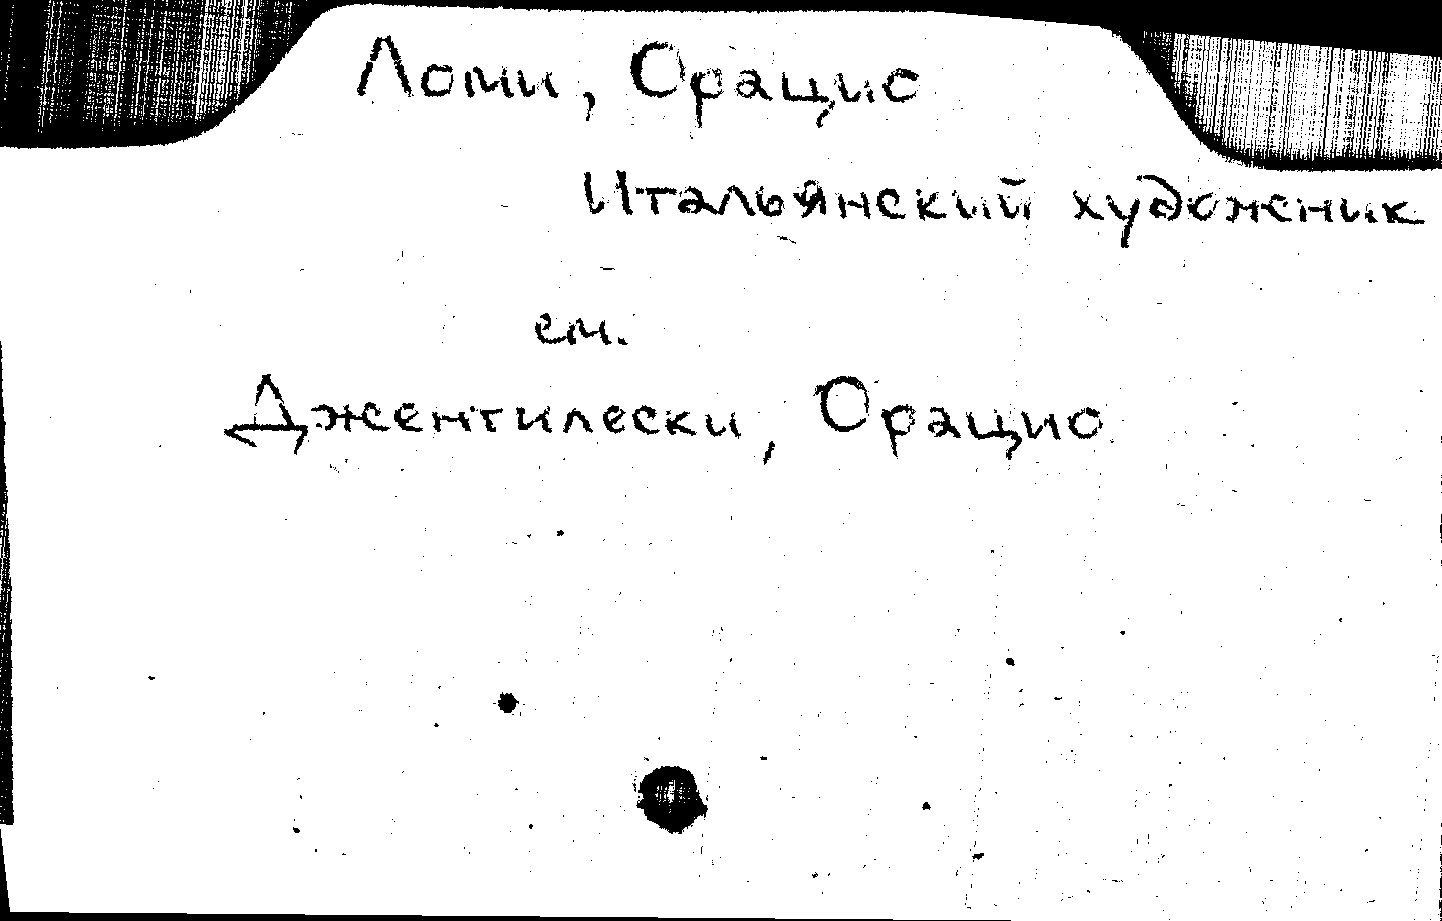 Ломи, Орацио
Итальянский художник
см.
Джентилески, Орацио